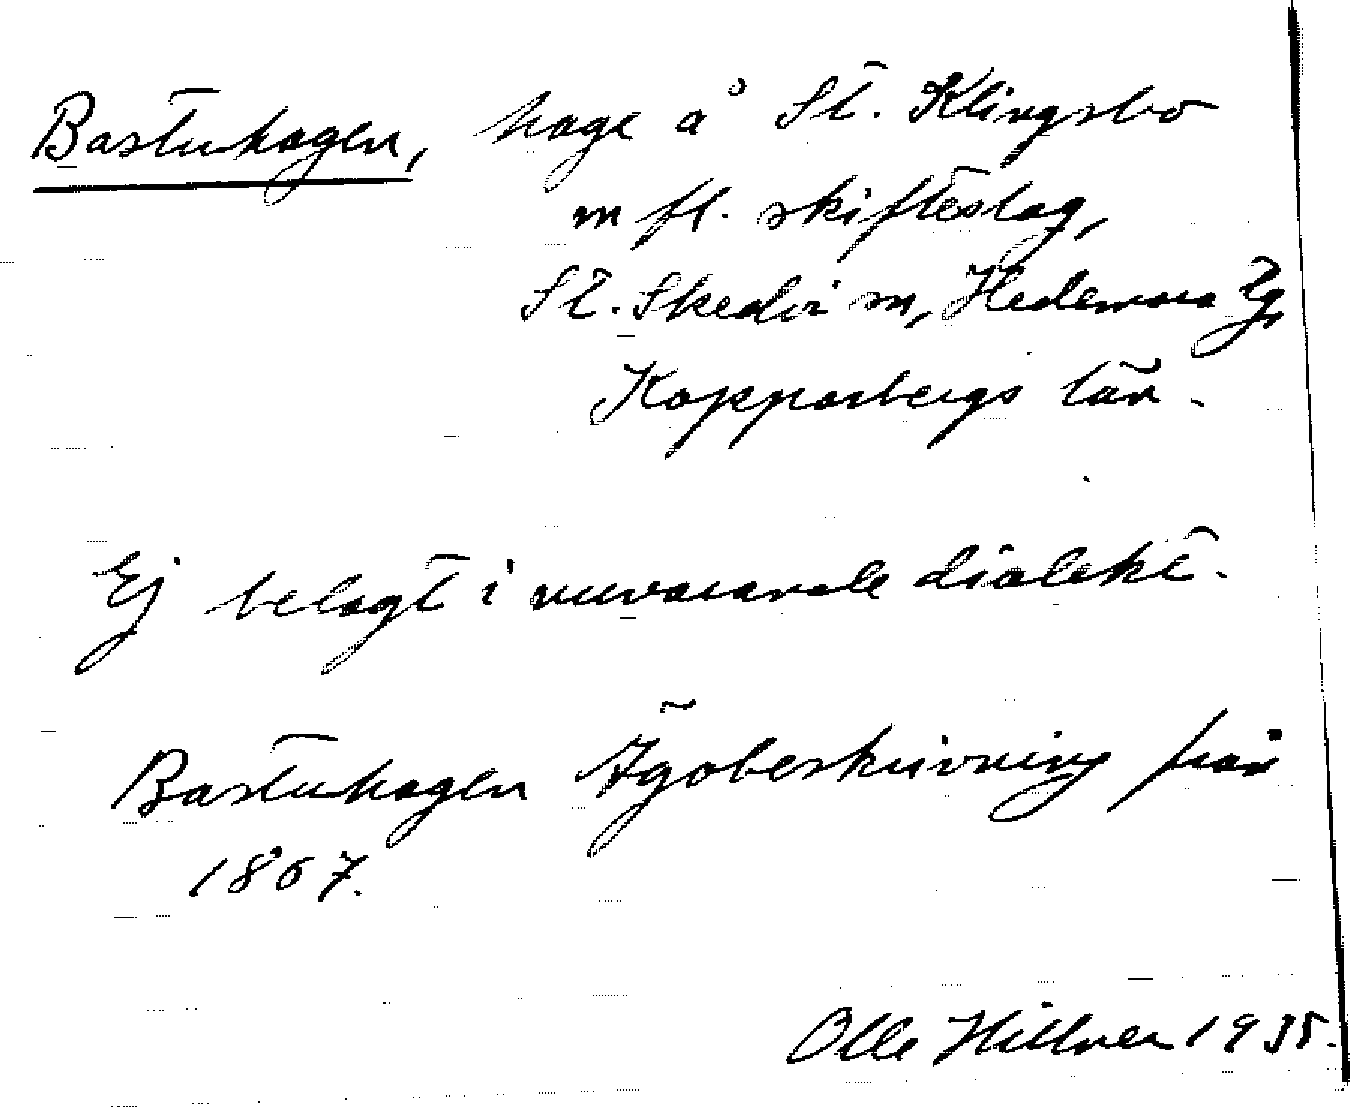 Bastuhagen, hage å St. Klingsbo
m fl. skifteslag,
St. Skedvi sn, Hedemora tg,
Kopparbergs län.
Ej belagt i nuvarande dialekt.
Bastuhagen Ägobeskrivning från
1867.
Olle Hillner 1935.